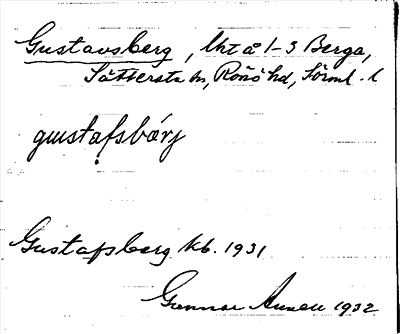 Gustavsberg, Uht å 1-3 Berga,
Sättersta sn, Rönö hd, Söml. l
gɯstafsbærj
Gustafsberg kb. 1931
Gunnar 1932